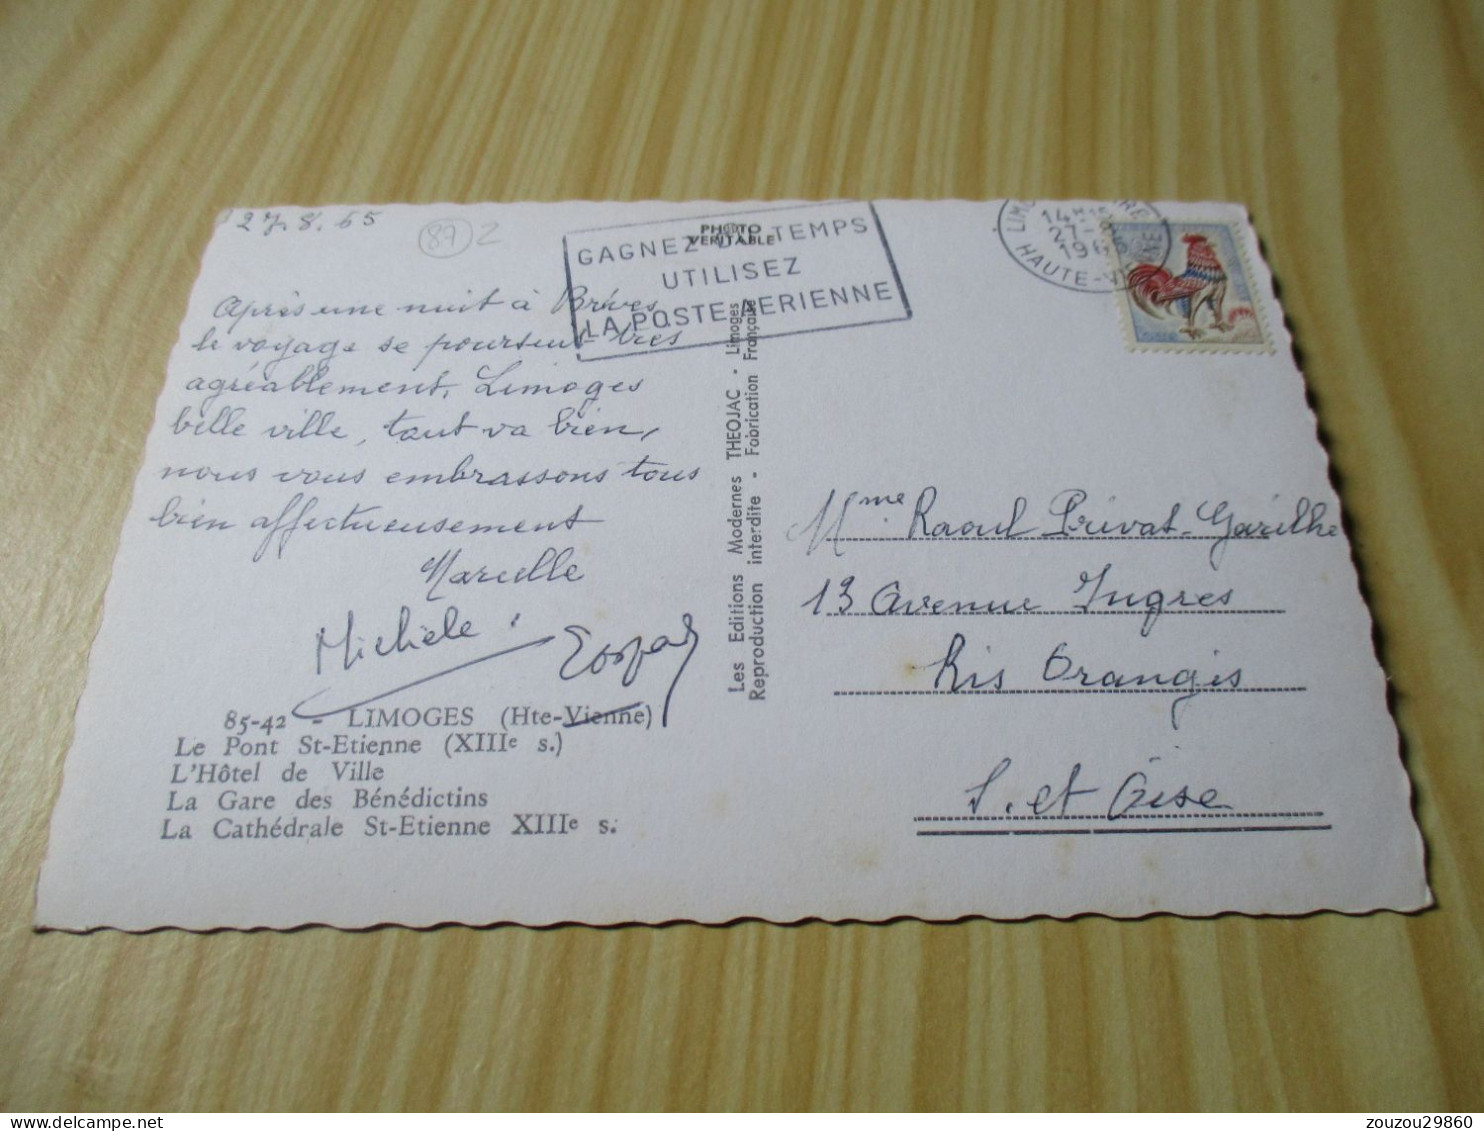 27.8.65
87 Z
Après une nuit à Brives
le voyage se poursuit très
agréablement, Limoges
belle ville, tout va bien,
nous vous embrassons tous
bien affectueusement
Marcelle
Michèle
85-42 - LIMOGES (Hte-Vienne)
Le Pont St-Etienne (XIIIe s.)
L'Hôtel de Ville
La Gare des Bénédictins
La Cathédrale St-Etienne XIIIe s.
PHOTO
VERITABLE
GAGNEZ DU TEMPS
UTILISEZ
LA POSTE AERIENNE
Les Editions Modernes THEOJAC - Limoges
Reproduction interdite - Fabrication Française
14H15
27-8
1965
HAUTE-VIENNE
Mme Raoul Privat-Garilhe
13 Avenue Ingres
Ris Orangis
S. et Oise
zouzou29860